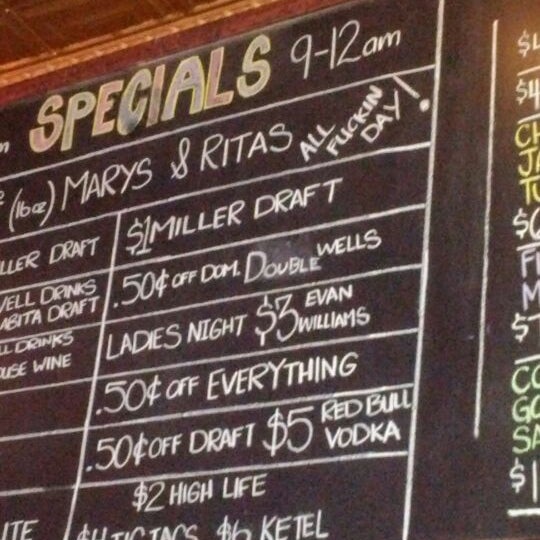 SPECIALS 9-12am
(16oz) MARYS & RITAS ALL FUCKIN DAY!
LLER DRAFT $1 MILLER DRAFT
WELL DRINKS
ABITA DRAFT .50¢ OFF DOM. DOUBLE WELLS
LL DRINKS
OUSE WINE LADIES NIGHT $3 EVAN WILLIAMS
.50¢ OFF EVERYTHING
.50¢ OFF DRAFT $5 RED BULL VODKA
$2 HIGH LIFE
ITE $4 TIC TACS $6 KETEL
$4
CH
JA
TU
$6
F
M
$
CO
GO
SA
$1